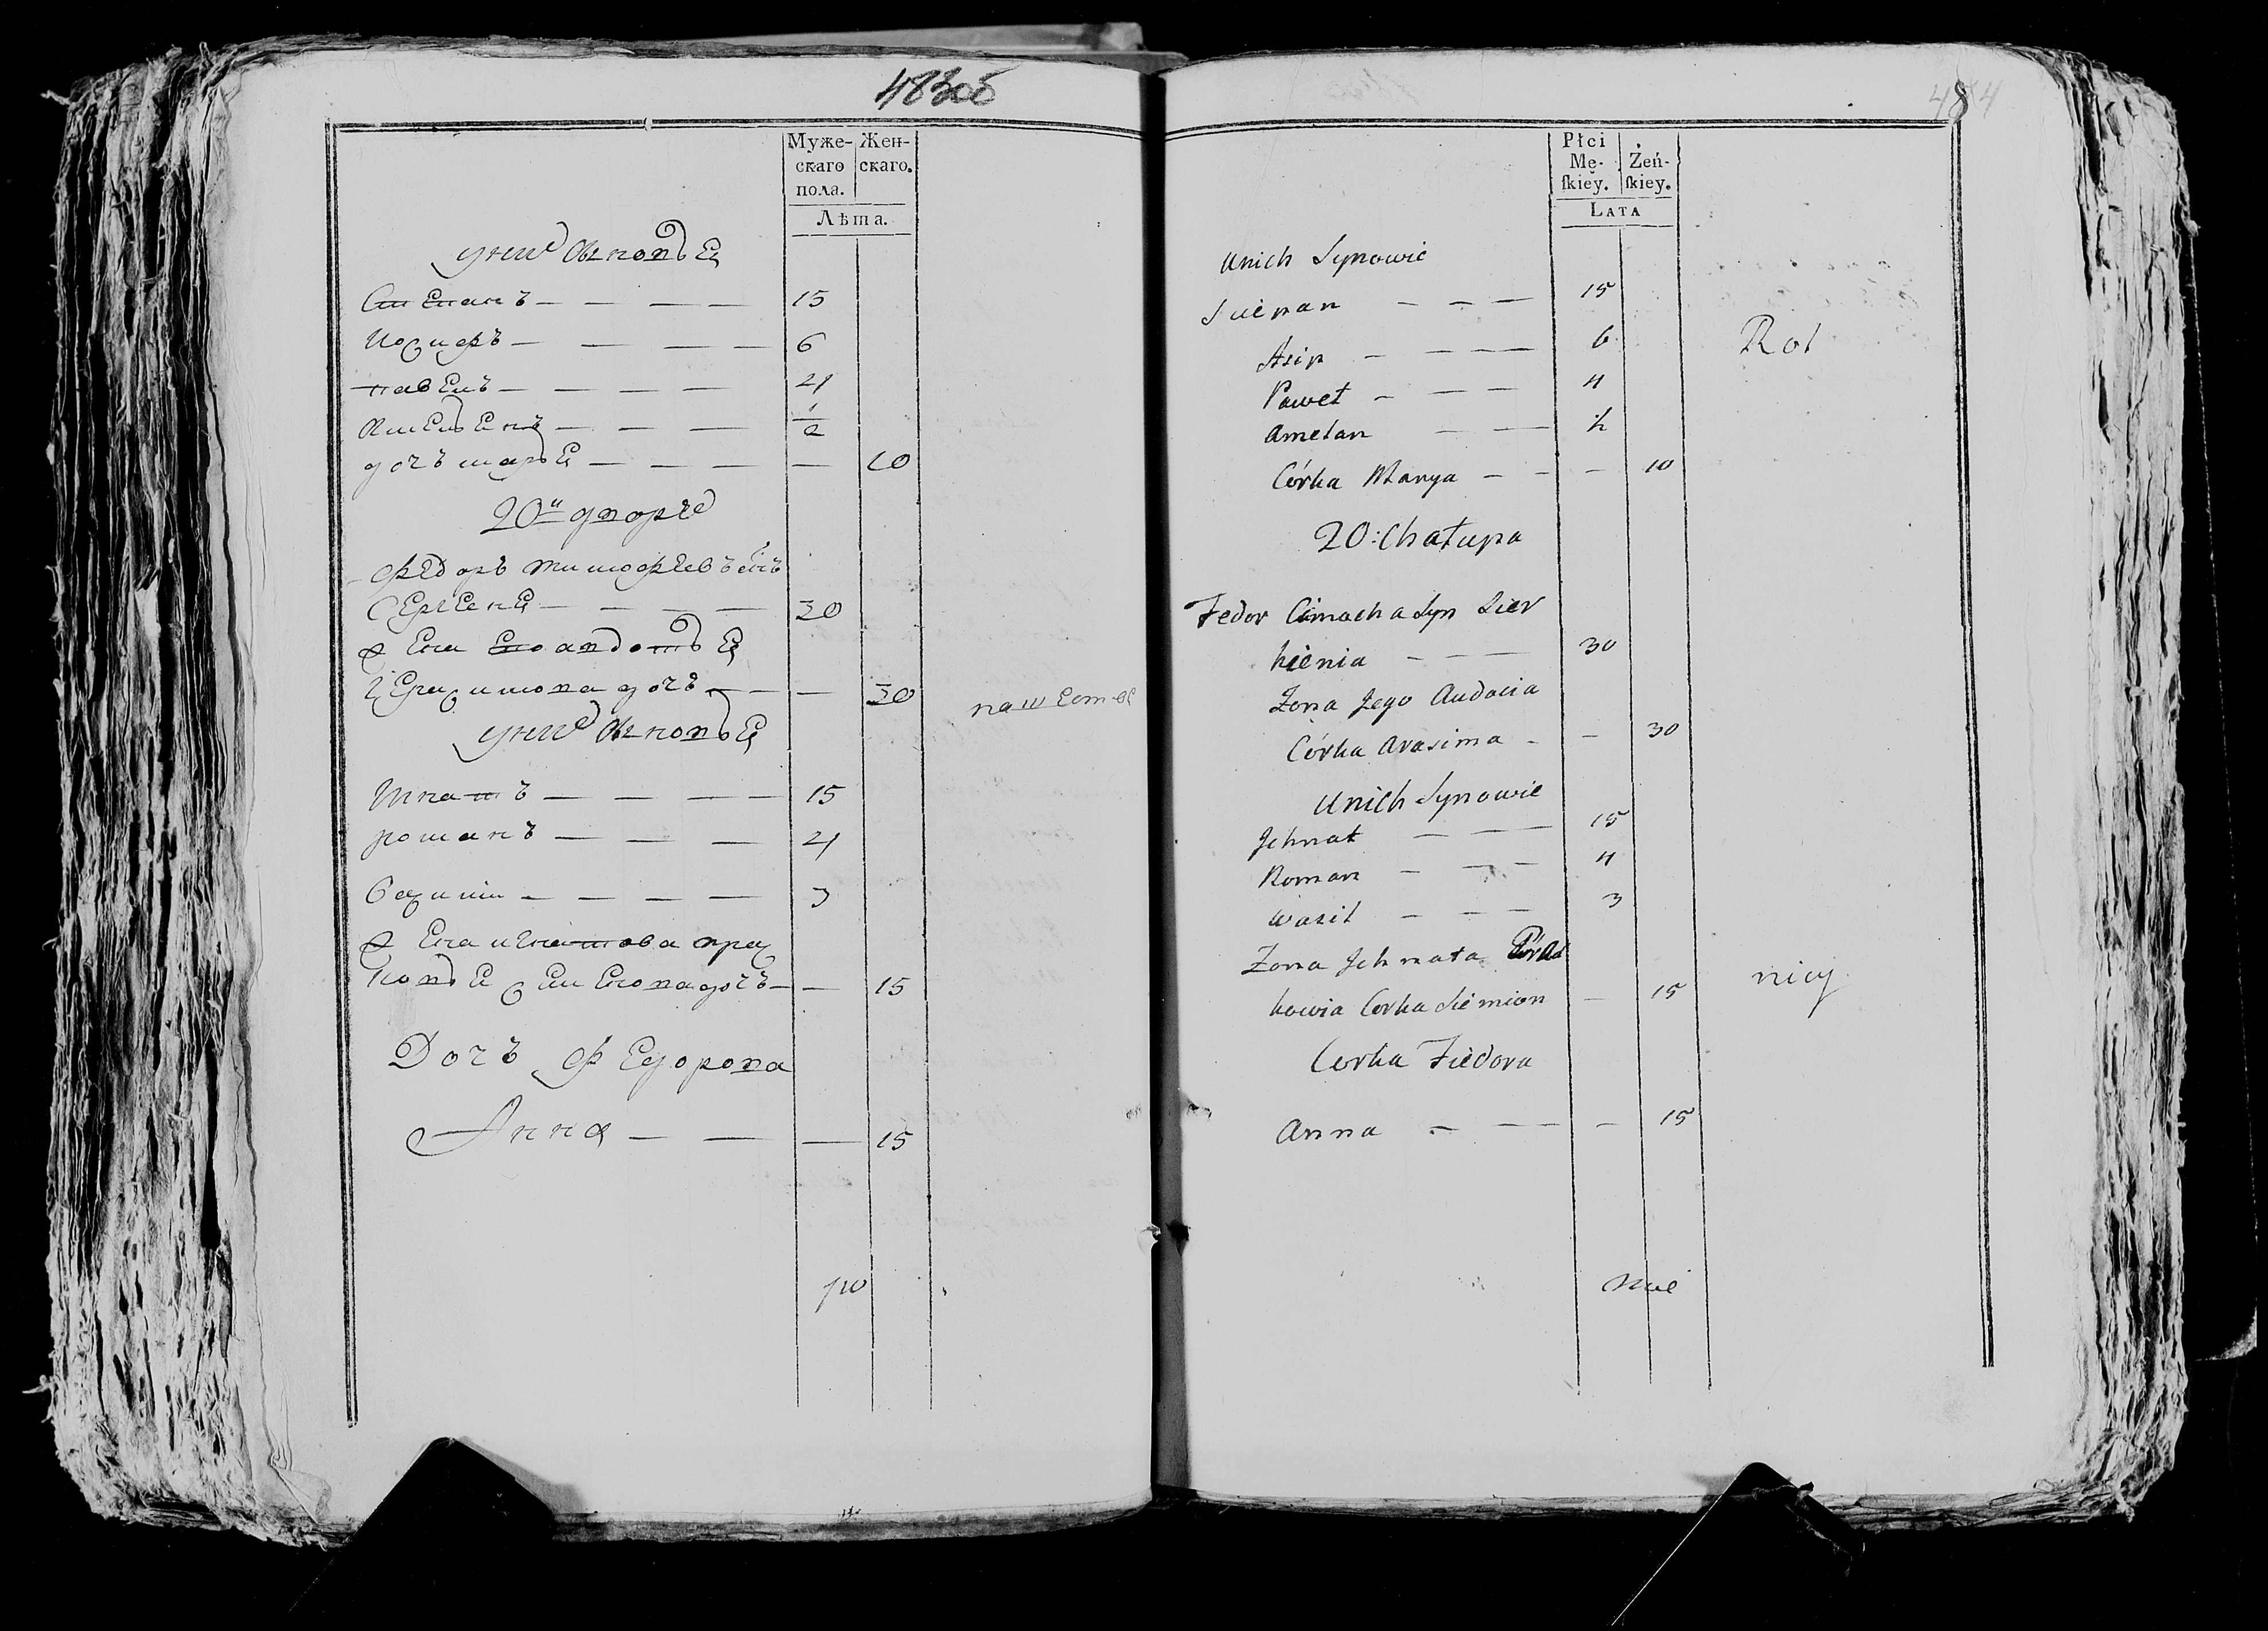 483об
Муже-
скаго
пола.
Жен-
скаго.
Лѣта.
у нихъ сыновья
Степанъ — — — — 15
Иосифъ — — — — 6
павелъ — — — — 4
Амельянъ — — — 1/2
дочь марья — — — — 10
20й дворъ
Федоръ тимофеевъ сынъ
Сергеня — — — — 30
жена Его авдотья
герасимова дочь — — — 30
у нихъ сыновья
Игнатъ — — — — 15
романъ — — — 4
василий — — — — 3
жена игнатова прас
ковья семенова дочь — — 15
Дочь Федорова
Анна — — — 15
484
Płci
Mę-
ſkiey.
Żeń-
ſkiey.
LATA
Unich Synowie
Sciepan — — — 15
Asip — — — — 6
Rol
Paweł — — — 4
Amelan — — ½
Córka Marya — — — 10
20: Chałupa
Fedor Cimocha Syn Sier
hienia — — — 30
Zona Jego Audocia
Córka Arasima — — 30
Unich Synowie
Jhnat — — — 15
Roman — — 4
Wasil — — — 3
Zona Jhnata Pras
kowia Corka Siemion — 15
nicy
Corka Fiedora
Anna — — — 15